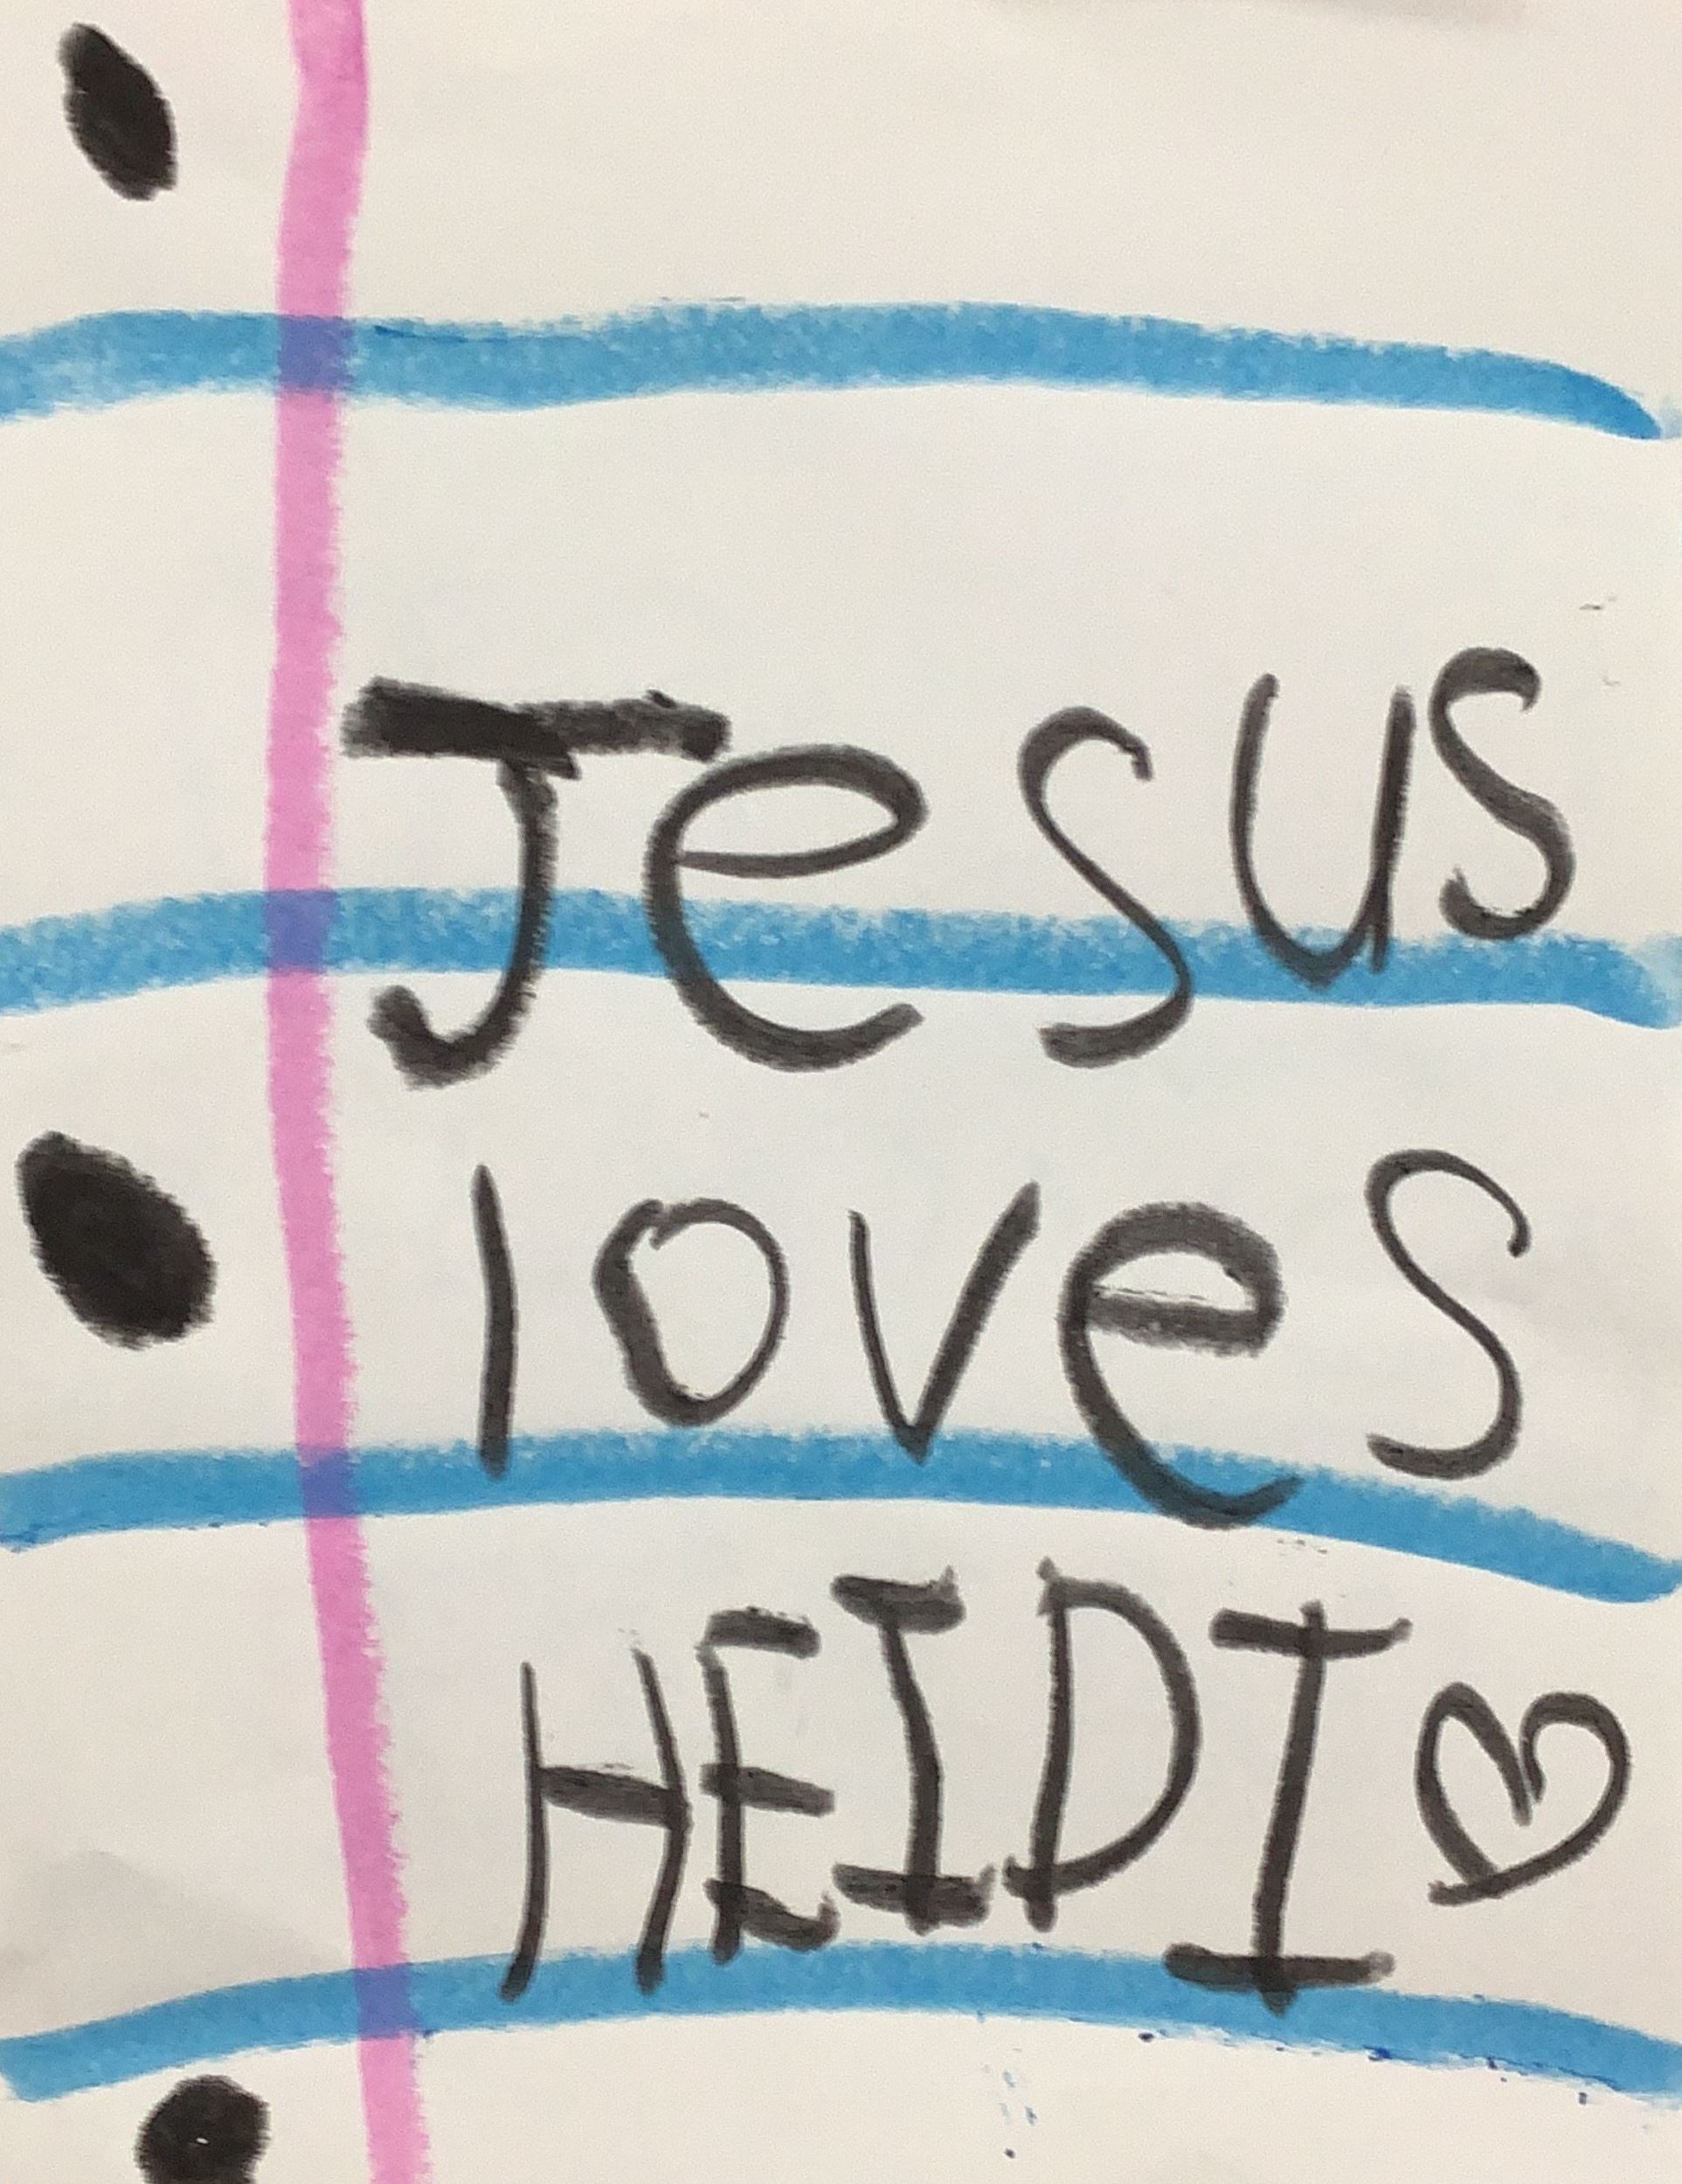 Jesus
loves
HEIDI♡